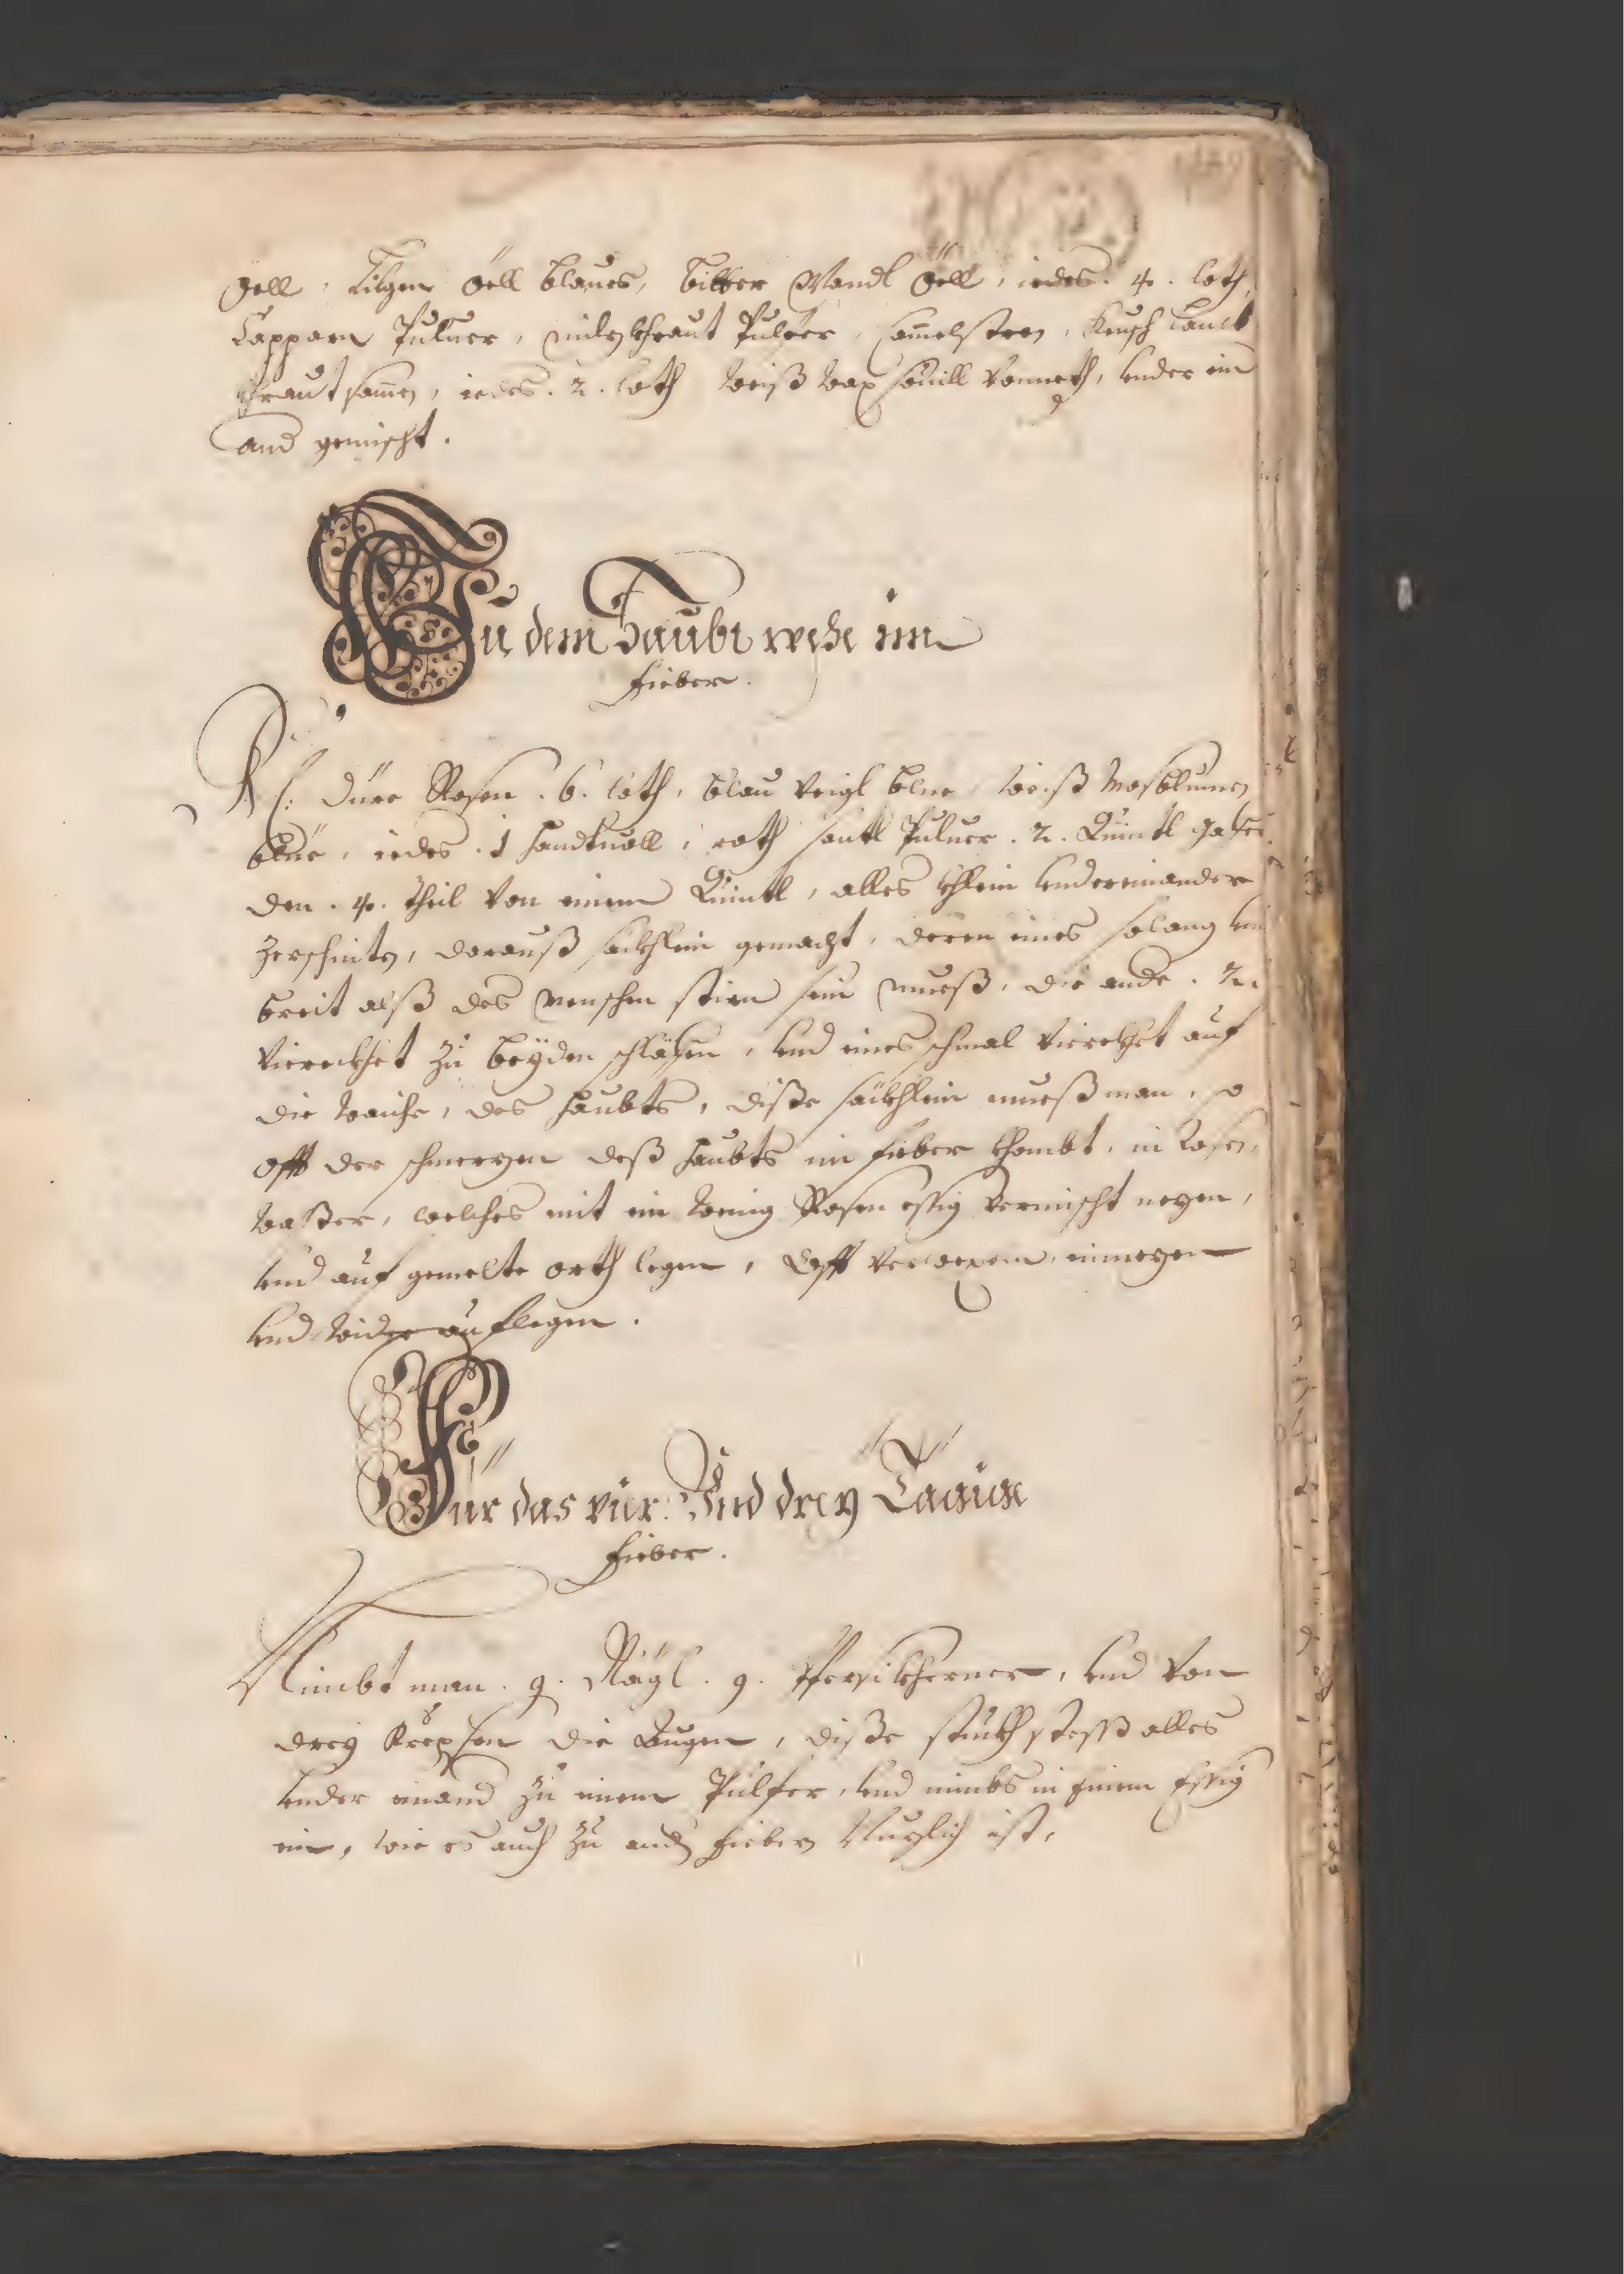 Öell, Lilgen Öell blaues, bitter Mandl Öell, iedes. 4. loth,
Cappara Puluer, milzkhraut Pulfer, Keusch Lamb
khraut samen, iedes. 2. loth weiß wax souill vonneth, vnder ein
and gemischt.
Zu dem Haubt wehe im
Fieber.
Rc: dürr Rosen. 6. loth, blau veigl blue, weiß
blüe, iedes. 1 handtuoll, roth santl Puluer. 2. Quintl
den. 4. theil von einem Quintl, alles khlein vndereinander
zerschnitn, darauß säckhlein gemacht, deren eines solang vnd
breit alß des menschen stirn sein mueß, die ande. 2.
viereckhet zu beyden schläfen, vnd eines schmal vierekhet auf
die des haubts, diße säckhlein mueß man, so
offt der schmerzen deß haubts im fieber khombt, in Rosen,
waßer, welches mit ein wenig Rosen essig vermischt nezen,
vnd auf gemelte orth legen, Offt einnezen
vnd wider auflegen.
Für das vier: Vnd drey Tägige
Fieber.
Nimbt man. 9. Nägl. 9. Pfersikherner, vnd von
drey Krepsen die Augen, diße stückh stoß alles
vnder einand zu einem Pulfer, vnd nimbs in einem Essig
ein, wie es auch zu andn fiebern Nuzlich ist,